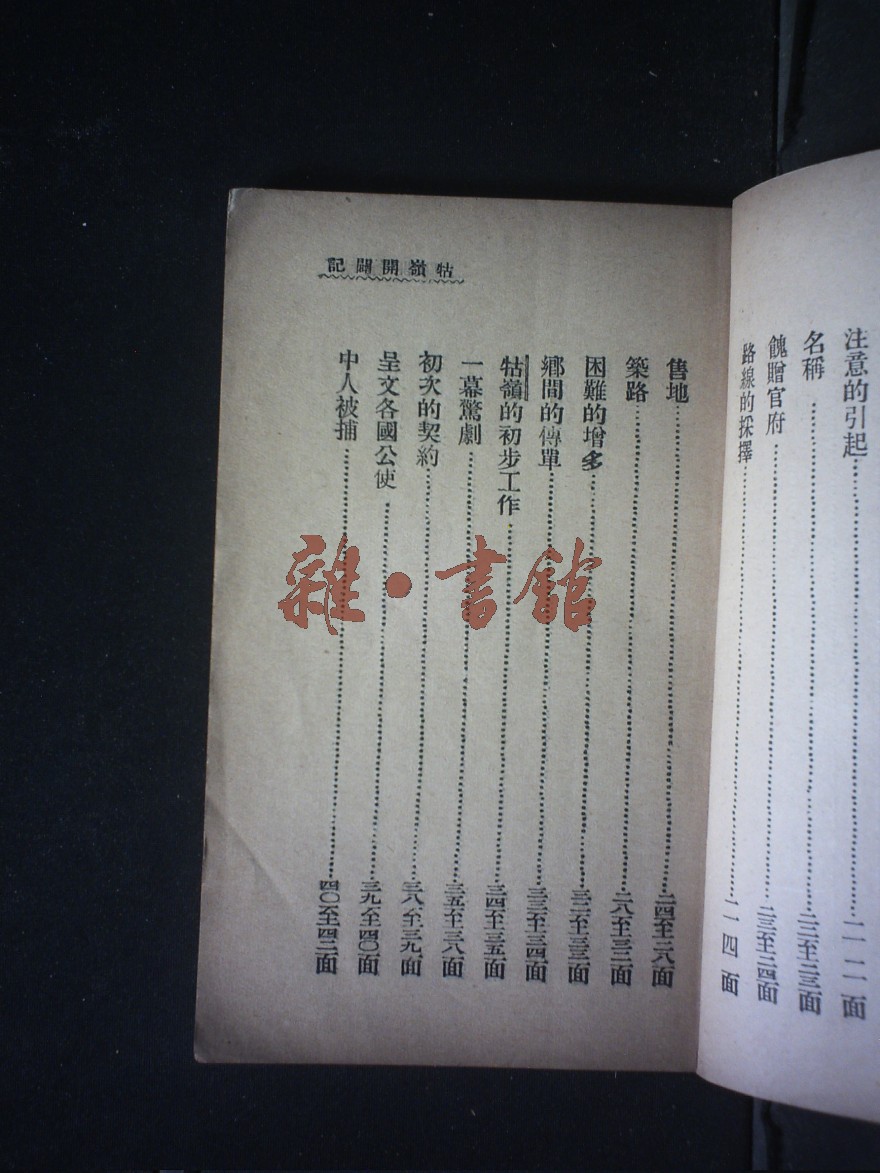 注意的引起……二二面
名稱……二二至二三面
餽贈官府……二三至二四面
路線的採擇……二四面
牯嶺開闢記
售地……二四至二八面
築路……二八至三二面
困難的增多……三二至三三面
鄉間的傳單……三三至三四面
牯嶺的初步工作……三四至三五面
一幕驚劇……三五至三八面
初次的契約……三八至三九面
呈文各國公使……三九至四〇面
中人被捕……四〇至四二面
雜·書館